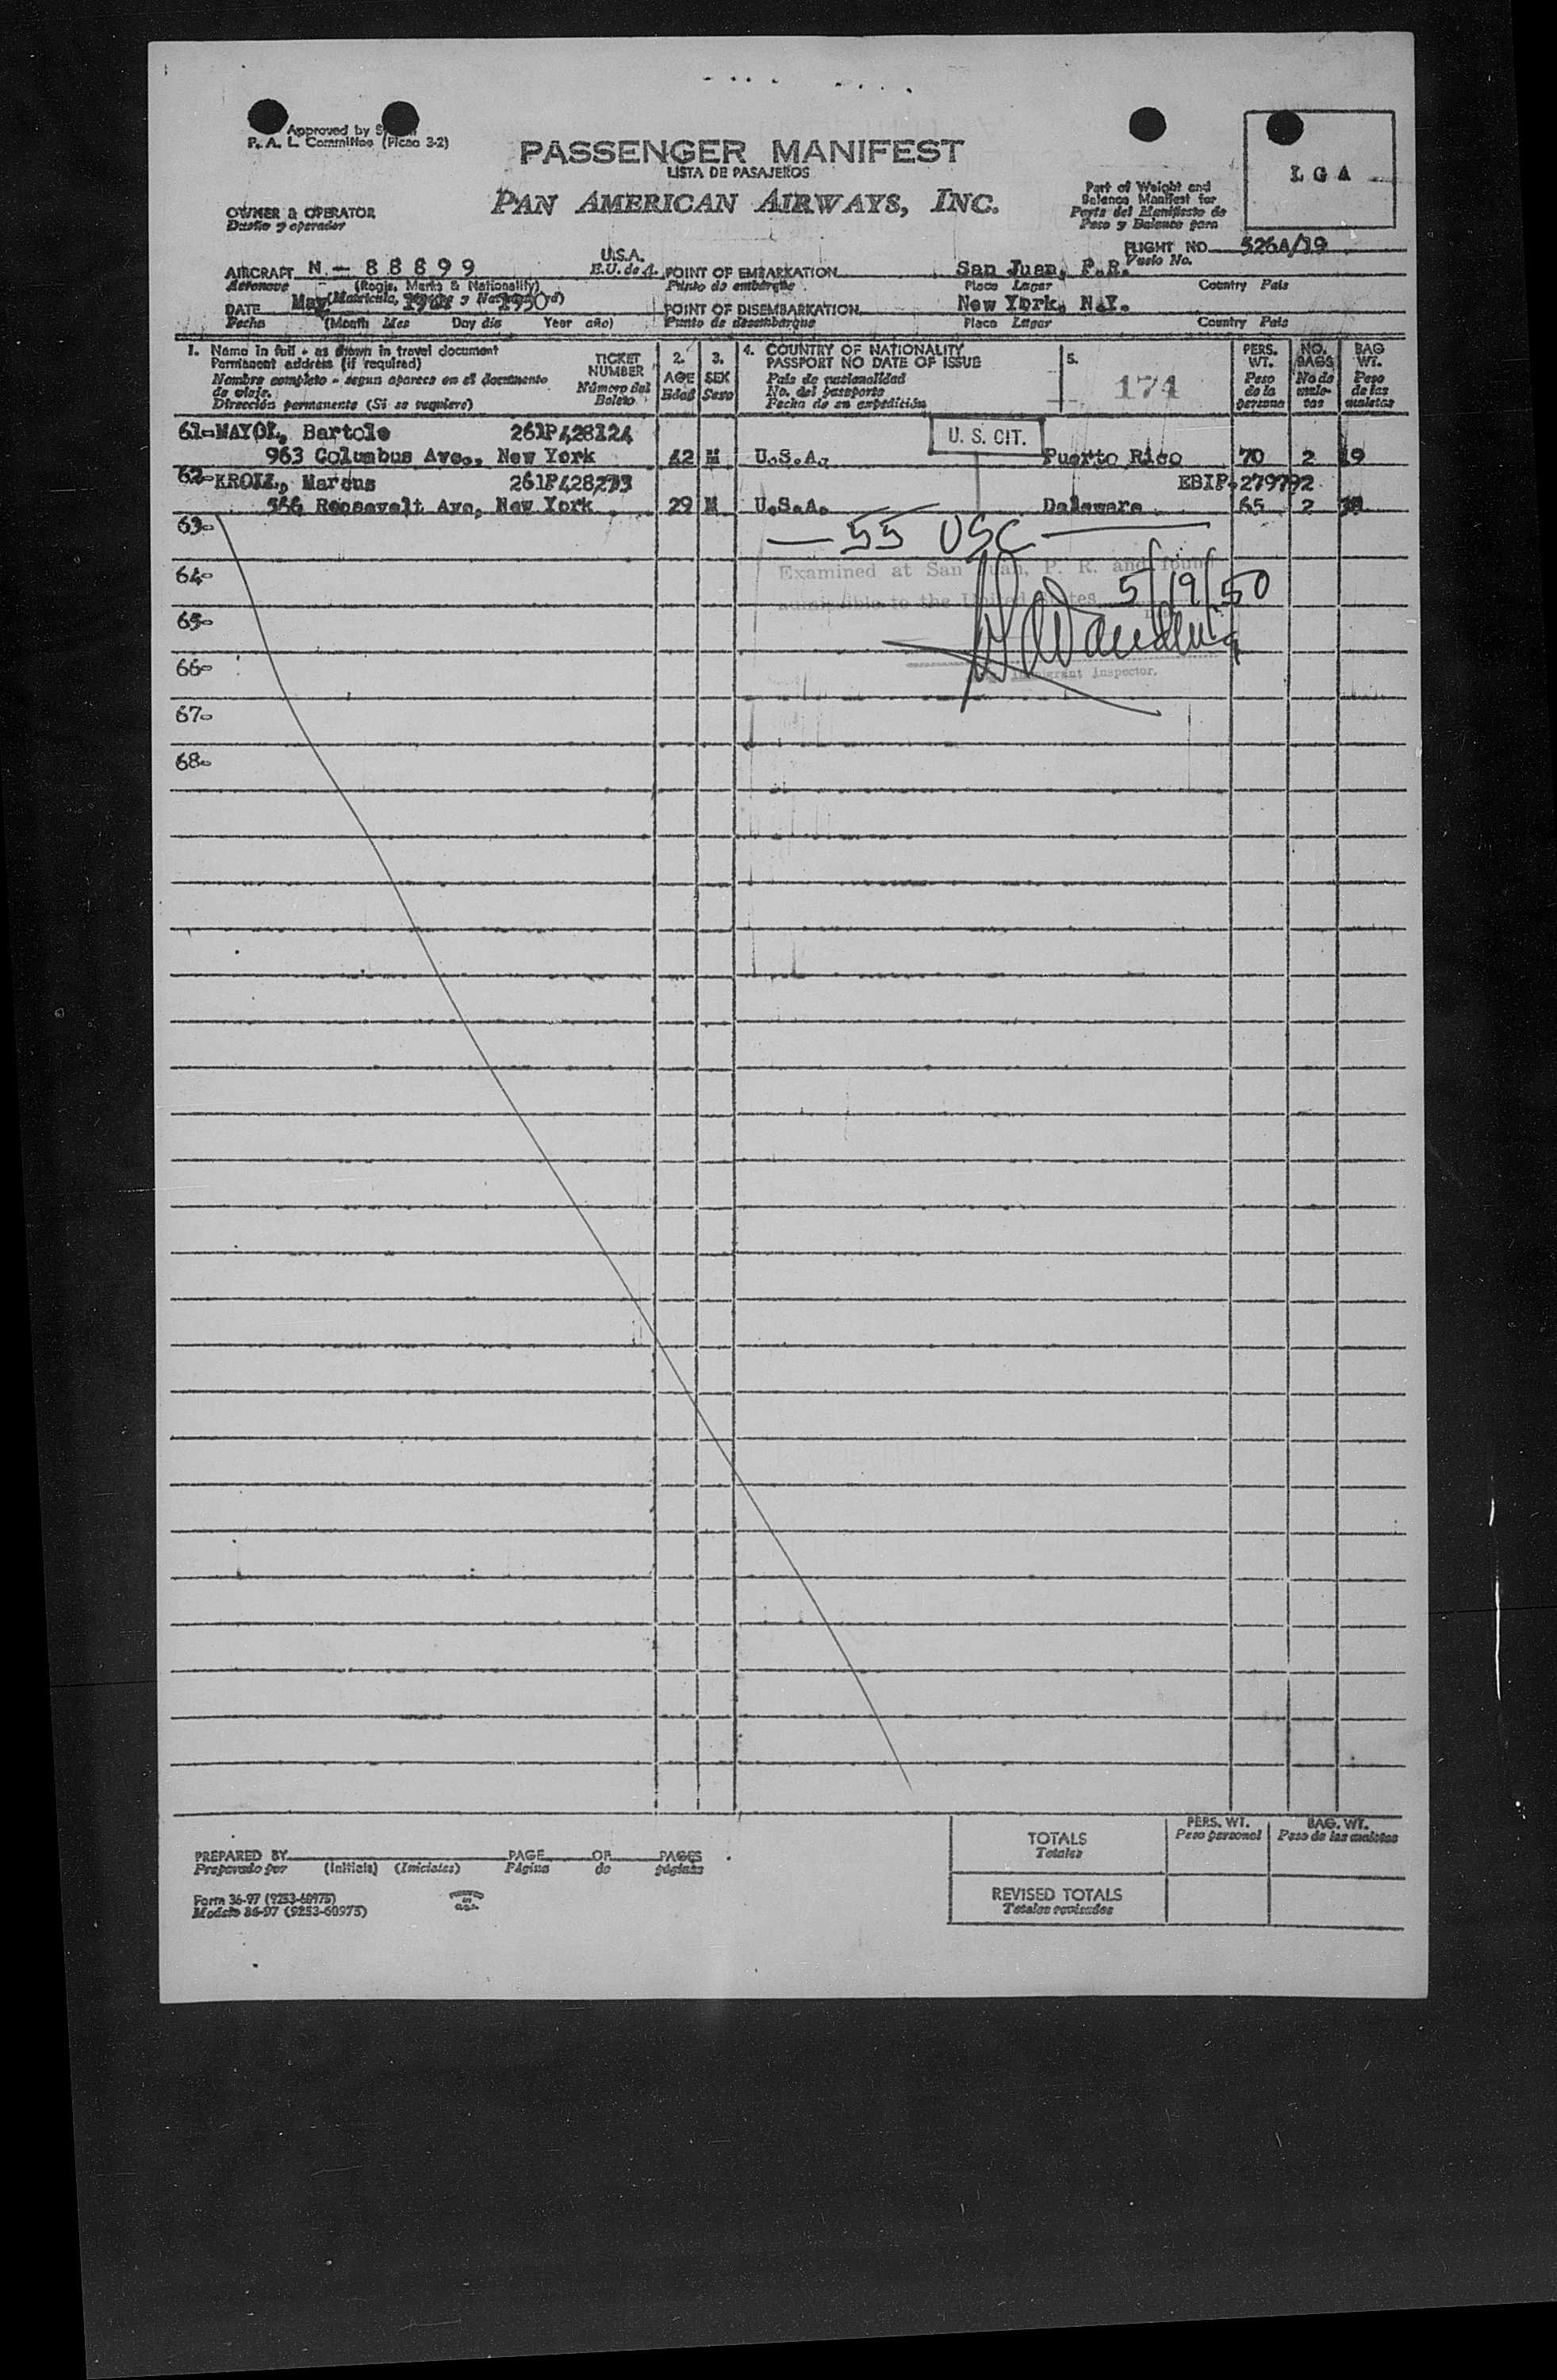 Approved by
P. A. L. Committee (Picao 3-2)
PASSENGER MANIFEST
LISTA DE PASAJEROS
PAN AMERICAN AIRWAYS, INC.
L G A
Part of Weight and
Balance Manifest for
Parte del Manifiesto de
Peso y Balance para
OWNER & OPERATOR
Dueño y operador
FLIGHT NO. 526A/19
Vuelo No.
AIRCRAFT N - 88899 U.S.A. POINT OF EMBARKATION San Juan, P.R.
Aeronave (Regis. Marks & Nationality) E.U. de A. Punto de embarque Place Lugar Country País
DATE May 1950 POINT OF DISEMBARKATION New York, N.Y.
Fecha (Month Mes Day día Year año) Punto de desembarque Place Lugar Country País
1. Name in full - as shown in travel document
Permanent address (if required)
Nombre completo - segun aparece en el documento
de viaje.
Dirección permanente (Si se requiere)
TICKET
NUMBER
Número del
Boleto
2.
AGE
Edad
3.
SEX
Sexo
4. COUNTRY OF NATIONALITY
PASSPORT NO DATE OF ISSUE
País de nacionalidad
No. del pasaporte
Fecha de su expedición
5.
174
PERS.
WT.
Peso
de la
persona
NO.
BAGS
No de
male-
tas
BAG
WT.
Peso
de las
maletas
61-MAYOL, Bartole 261P428124 U. S. CIT.
963 Columbus Ave., New York 42 M U.S.A. Puerto Rico 70 2 19
62-KROLL, Marcus 261P428273 EBIP-279792
566 Roosevelt Ave, New York 29 M U.S.A. Delaware 65 2
63- — 55 USC —
64- Examined at San Juan, P. R. and found
admissible to the United States 5/19/50
65-
66- Immigrant Inspector.
67-
68-
TOTALS
Totales
PERS. WT.
Peso personal
BAG. WT.
Peso de las maletas
PREPARED BY PAGE OF PAGES
Preparado por (Initials) (Iniciales) Página de páginas
REVISED TOTALS
Totales revisados
Form 36-97 (9253-60975)
Modelo 86-97 (9253-60975)
PRINTED
IN
U.S.A.